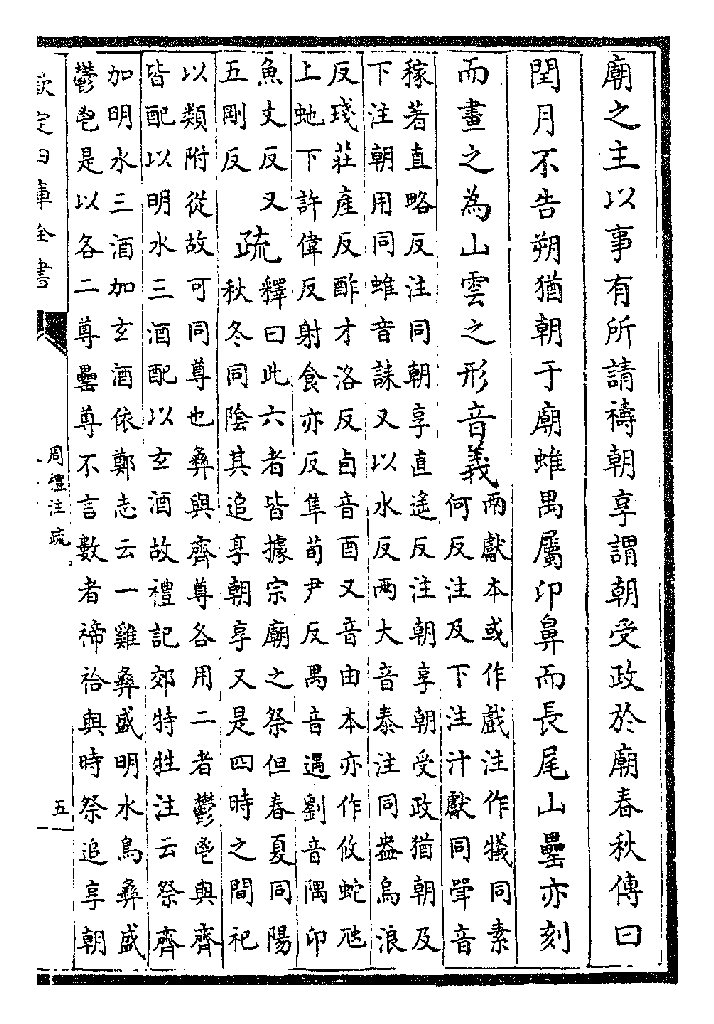 廟之主以事有所請禱朝享謂朝受政於廟春秋傳曰
閏月不告朔猶朝于廟蜼禺屬卬鼻而長尾山罍亦刻
而畫之為山雲之形音義
兩獻本或作戲注作犧同素
何反注及下注汁獻同斝音
稼著直略反注同朝享直遙反注朝享朝受政猶朝及
下注朝用同蜼音誄又以水反兩大音泰注同盎烏浪
反琖莊產反酢才洛反卣音酉又音由本亦作攸蛇虵
上虵下許偉反射食亦反隼荀尹反禺音遇劉音隅卬
魚丈反又
五剛反
疏
釋曰此六者皆據宗廟之祭但春夏同陽
秋冬同陰其追享朝享又是四時之間祀
以類附從故可同尊也彝與齊尊各用二者鬱鬯與齊
皆配以明水三酒配以玄酒故禮記郊特牲注云祭齊
加明水三酒加玄酒依鄭志云一雞彝盛明水鳥彝盛
鬱鬯是以各二尊罍尊不言數者禘祫與時祭追享朝
欽定四庫全書
周禮注疏
五